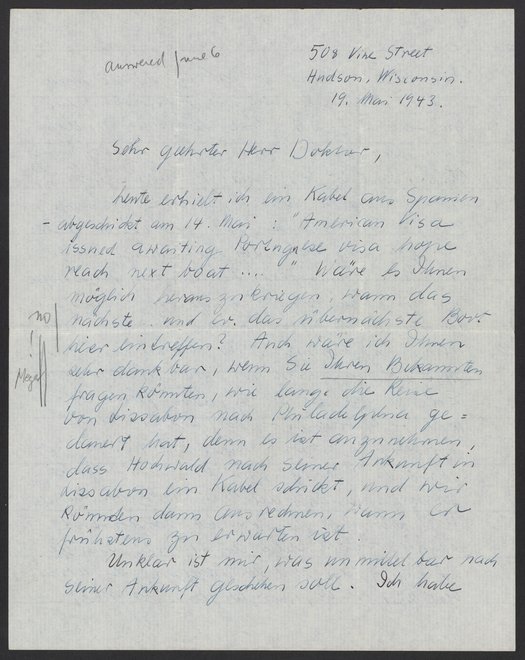 answered June 6
508 Vine Street
Hudson, Wisconsin.
19. Mai 1943.
Sehr geehrter Herr Doktor,
heute erhielt ich ein Kabel aus Spanien
- abgeschickt am 14. Mai : "American Visa
issued awaiting Portuguese visa hope
reach next boat ...." Wäre es Ihnen
möglich herauszukriegen, wann das
nächste und ev. das übernächste Boot
hier eintreffen? Auch wäre ich Ihnen
sehr dankbar, wenn Sie Ihren Bekannten
fragen könnten, wie lange die Reise
von Lissabon nach Philadelphia ge=
dauert hat, denn es ist anzunehmen,
dass Hochwald nach seiner Ankunft in
Lissabon ein Kabel schickt, und wir
könnten dann ausrechnen, wann er
frühstens zu erwarten ist.
Unklar ist mir, was unmittelbar nach
seiner Ankunft geschehen soll. Ich habe
no!